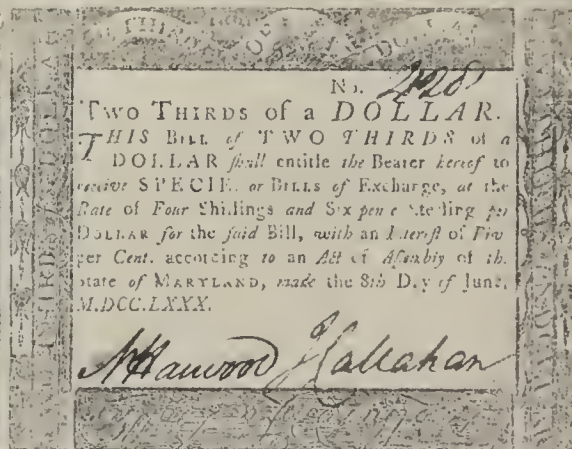 No. 2428
TWO THIRDS of a DOLLAR.
THIS BILL of TWO THIRDS of a
DOLLAR shall entitle the Bearer hereof to
receive SPECIE or BILLS of Exchange, at the
Rate of Four Shillings and Six pence Sterling per
DOLLAR for the said Bill, with an Interest of Five
per Cent. according to an Act of Assembly of the
State of MARYLAND, made the 8th Day of June,
M.DCC.LXXX.
NHarwood JCallahan